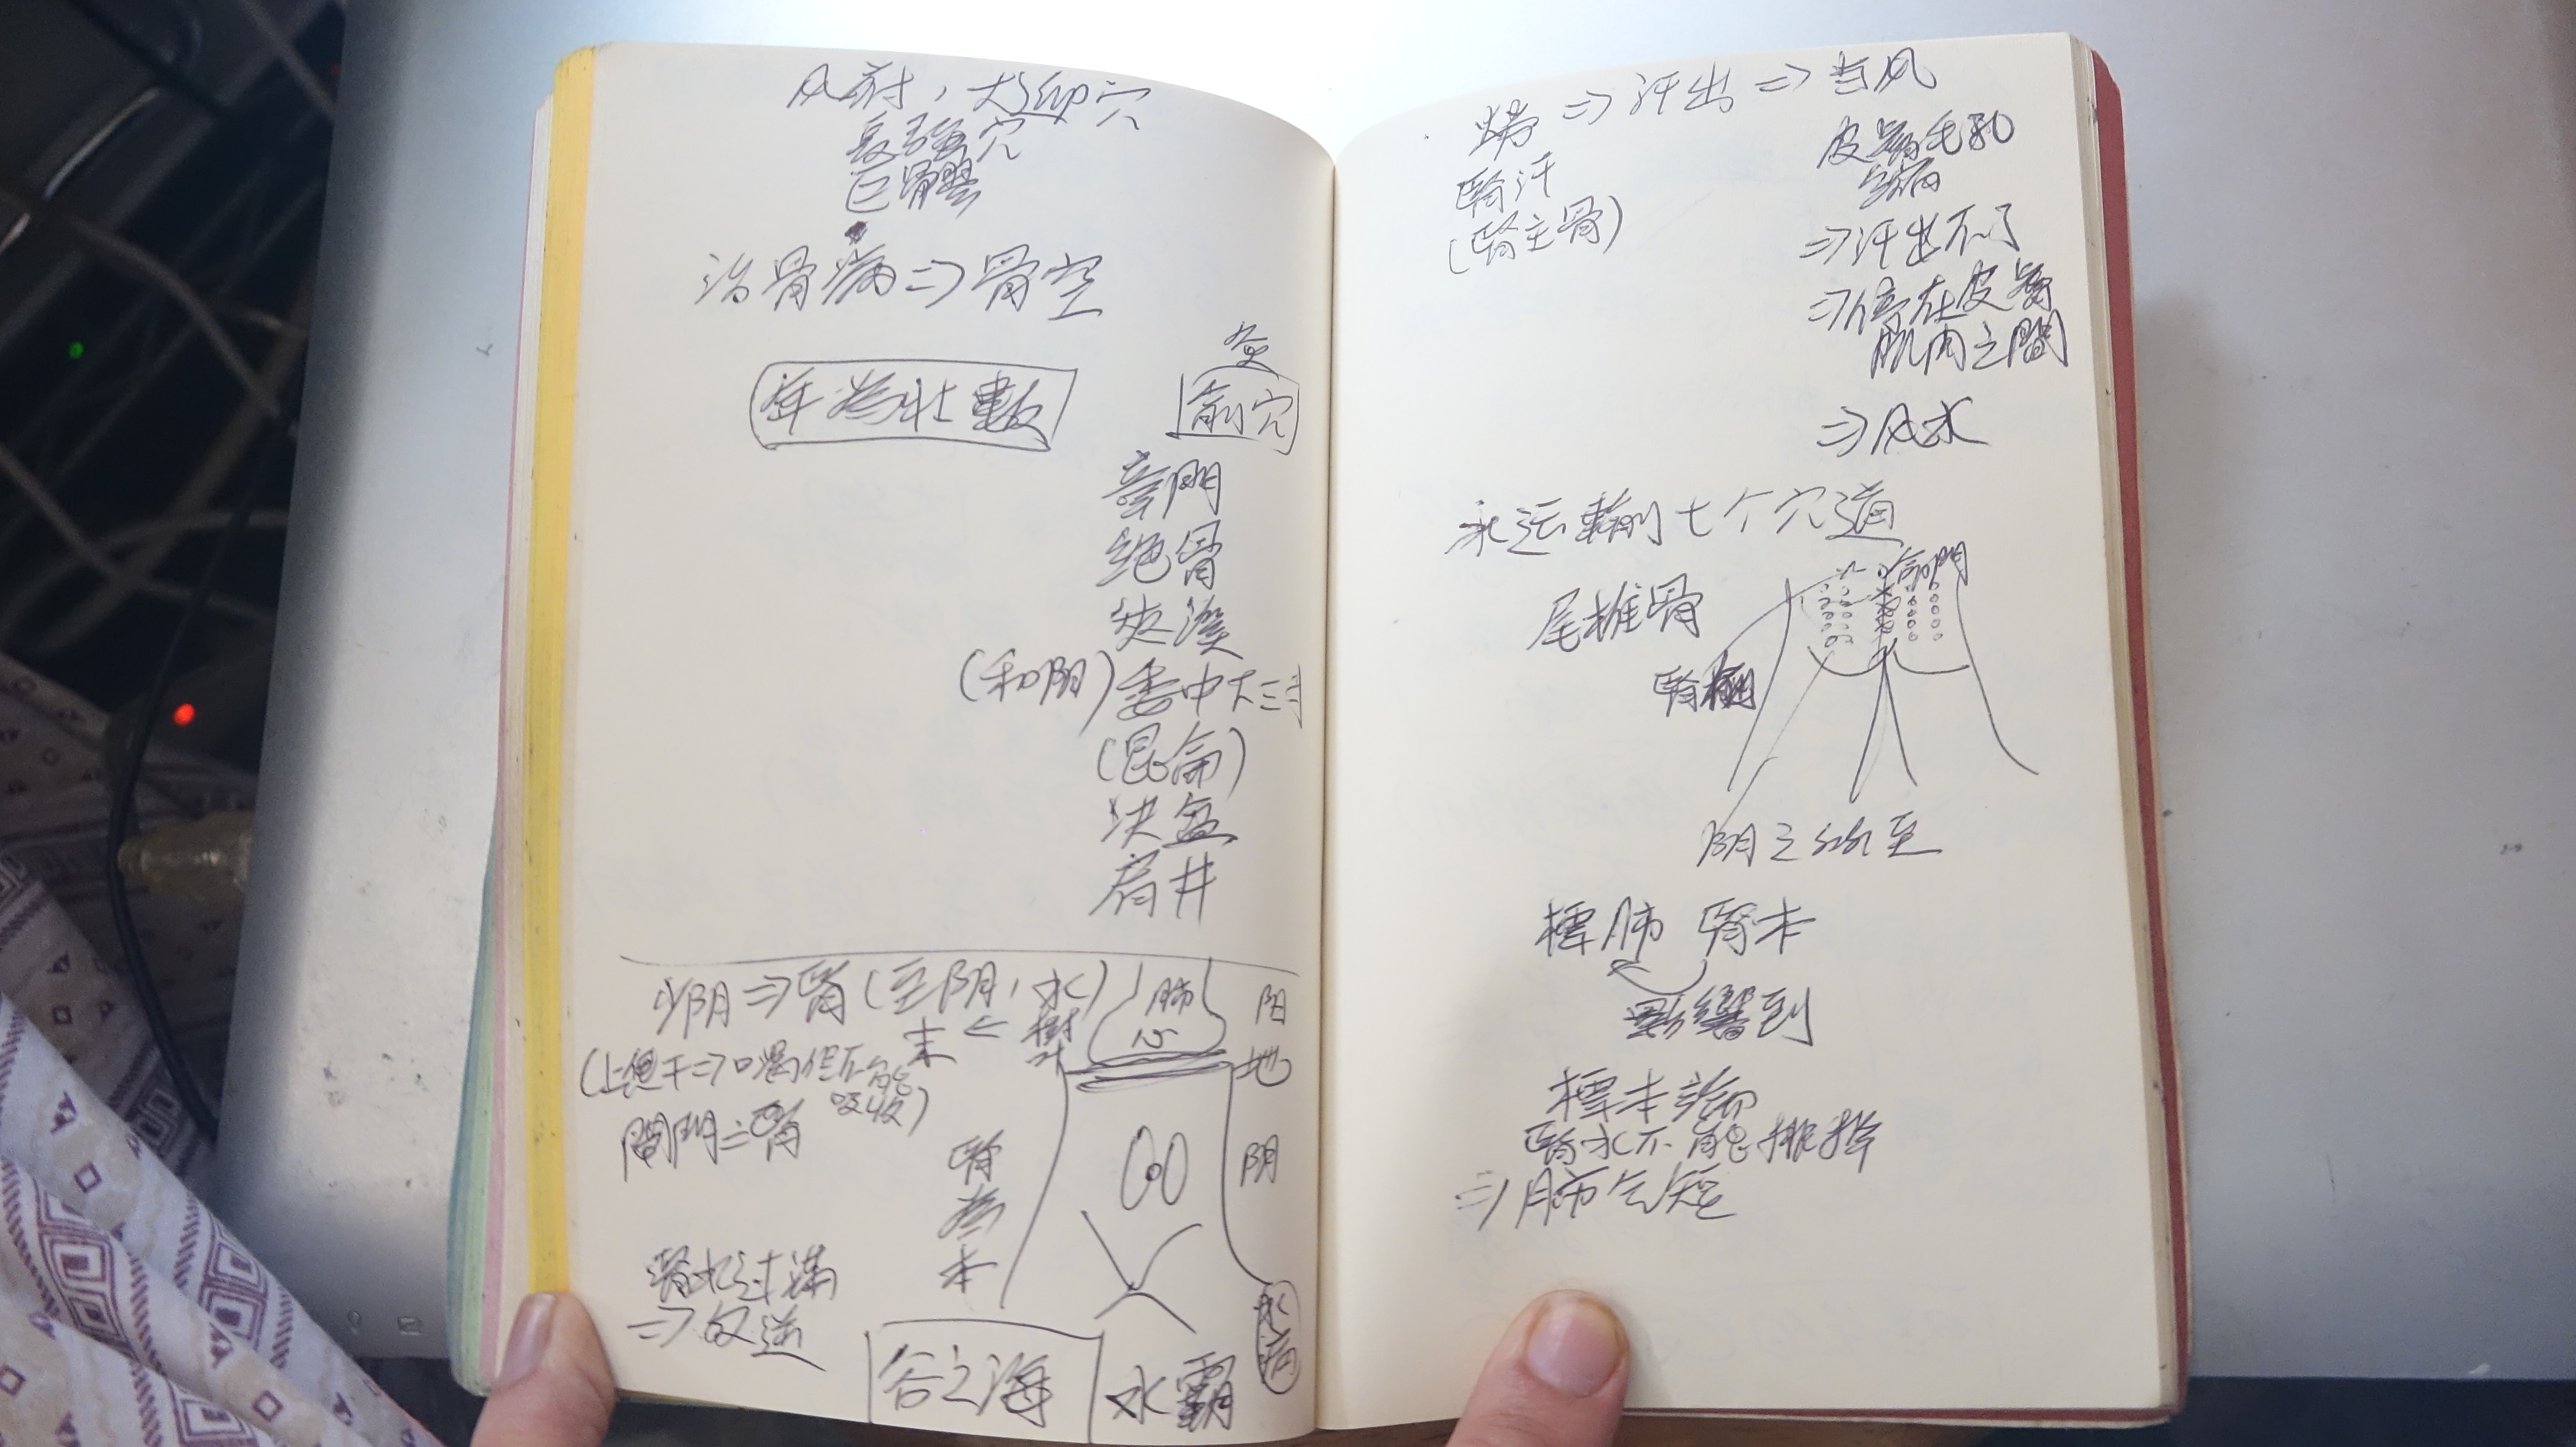 风府，大迎穴
長強穴
巨髎
治骨病⇒骨空
年為壯數
俞穴
章門
绝骨
俠溪
(和阴)委中下三寸
(昆侖)
決盆
肩井
少阴⇒腎(至阴，水)
末← 樹叶
(上焦干⇒口渴但不能
吸收)
關門⇒腎
腎為本
腎水过满
⇒反逆
肺
心
阳
地
阴
水病
谷之海
水霸
劳⇒汗出⇒当风
腎汗
(腎主骨)
皮膚毛孔
縮
⇒汗出不了
⇒停在皮膚
肌肉之間
⇒风水
永远輸刂七个穴道
命門
尾椎骨
腎
阴之絡至
標肺 腎本
影響到
標本
腎水不能排掉
⇒肺气短